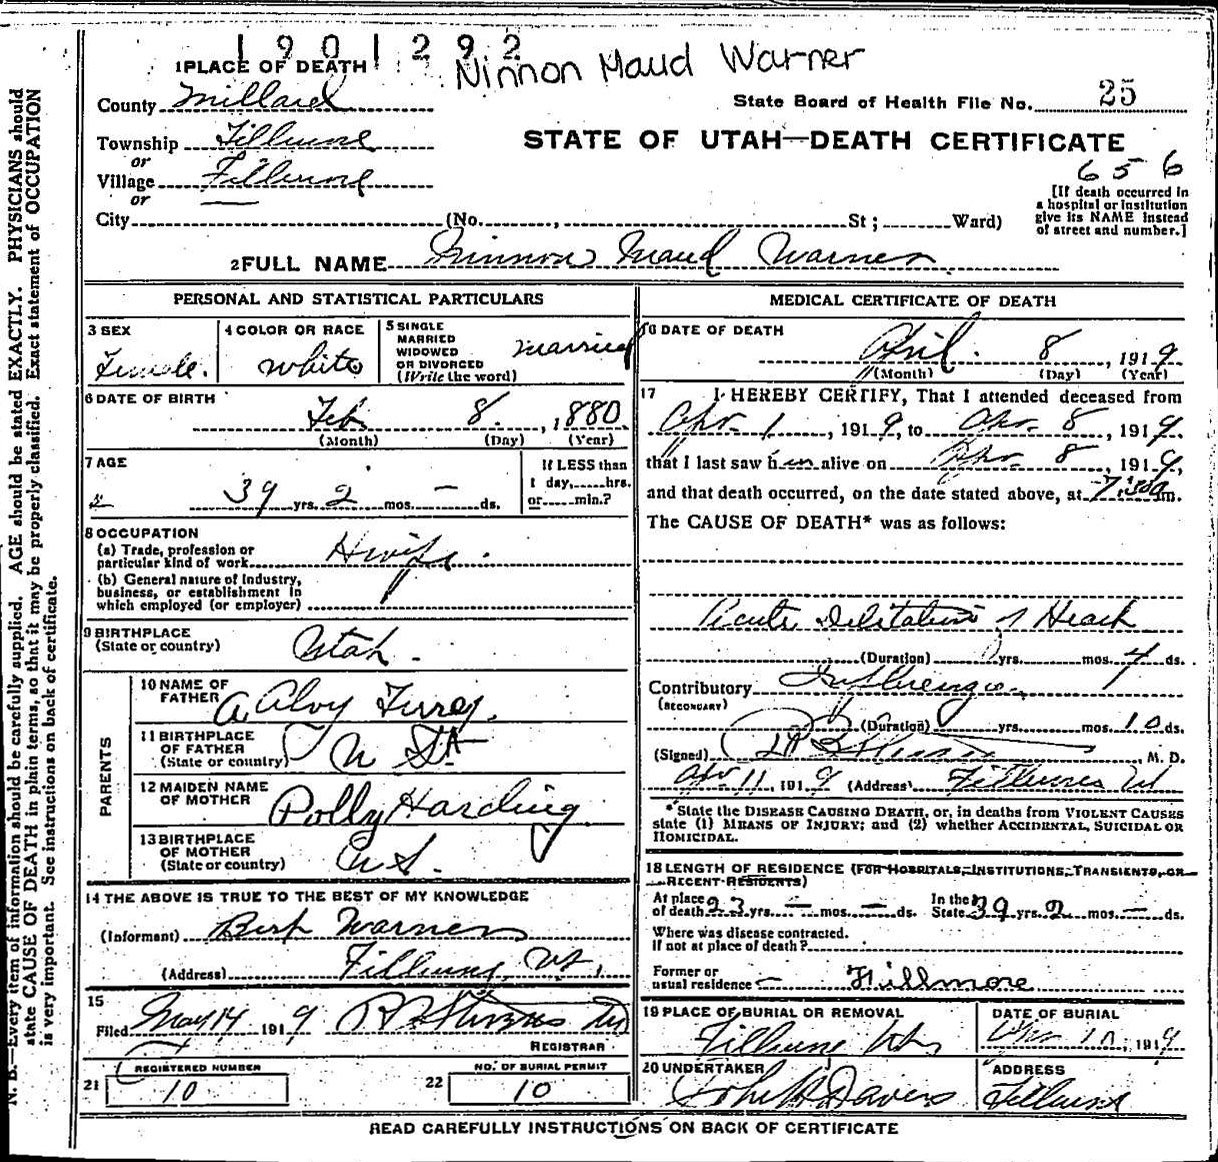 1901292
Ninnon Maud Warner
1 PLACE OF DEATH
County Millard
State Board of Health File No. 25
Township Fillmore
STATE OF UTAH—DEATH CERTIFICATE
or
Village Fillmore
656
or
City (No. , St; Ward)
[If death occurred in
a hospital or institution
give its NAME instead
of street and number.]
2 FULL NAME Ninnon Maud Warner
PERSONAL AND STATISTICAL PARTICULARS
3 SEX
Female.
4 COLOR OR RACE
White
5 SINGLE
MARRIED
WIDOWED
OR DIVORCED
(Write the word)
Married
6 DATE OF BIRTH
Feb 8. , 1880
(Month) (Day) (Year)
7 AGE
39 yrs. 2 mos. — ds.
If LESS than
1 day, hrs.
or min.?
8 OCCUPATION
(a) Trade, profession or
particular kind of work H wife.
(b) General nature of industry,
business, or establishment in
which employed (or employer)
9 BIRTHPLACE
(State or country) Utah.
PARENTS
10 NAME OF
FATHER A Alvy
11 BIRTHPLACE
OF FATHER
(State or country)
12 MAIDEN NAME
OF MOTHER Polly Harding
13 BIRTHPLACE
OF MOTHER
(State or country) U S.
14 THE ABOVE IS TRUE TO THE BEST OF MY KNOWLEDGE
(Informant) Bert Warner
(Address) Fillmore, Ut,
15
Filed May 14 1919 Stevens Md
REGISTRAR
REGISTERED NUMBER
21 10
NO. OF BURIAL PERMIT
22 10
MEDICAL CERTIFICATE OF DEATH
16 DATE OF DEATH
April. 8 , 1919.
(Month) (Day) (Year)
17 I HEREBY CERTIFY, That I attended deceased from
Apr. 1 , 1919, to Apr. 8 , 1919.
that I last saw her alive on Apr. 8 , 1919,
and that death occurred, on the date stated above, at 7:30a m.
The CAUSE OF DEATH* was as follows:
Acute Dilitation of Heart
(Duration) yrs. mos. 4 ds.
Contributory Influenza
(SECONDARY)
(Duration) yrs. mos. 10 ds.
(Signed) , M. D.
Apr 11, 1919 (Address) Fillmore Ut
* State the DISEASE CAUSING DEATH, or, in deaths from VIOLENT CAUSES
state (1) MEANS OF INJURY; and (2) whether ACCIDENTAL, SUICIDAL OR
HOMICIDAL.
18 LENGTH OF RESIDENCE (FOR HOSPITALS, INSTITUTIONS, TRANSIENTS, OR
RECENT RESIDENTS)
At place
of death 23 yrs. — mos. — ds.
In the
State 39 yrs. 2 mos. — ds.
Where was disease contracted.
If not at place of death?
Former or
usual residence — Fillmore
19 PLACE OF BURIAL OR REMOVAL
Fillmore Utah
DATE OF BURIAL
Apr 10, 1919
20 UNDERTAKER
Davies
ADDRESS
Fillmore
READ CAREFULLY INSTRUCTIONS ON BACK OF CERTIFICATE
N. B.—Every item of information should be carefully supplied. AGE should be stated EXACTLY. PHYSICIANS should
state CAUSE OF DEATH in plain terms, so that it may be properly classified. Exact statement of OCCUPATION
is very important. See instructions on back of certificate.